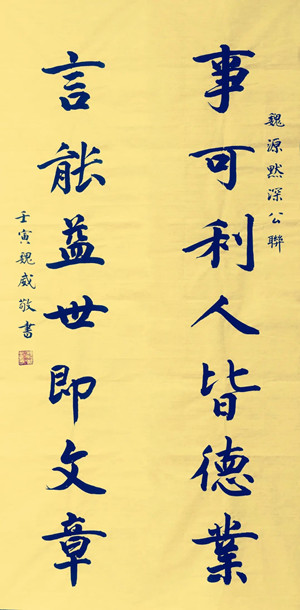 事可利人皆德業
魏源默深公聯
言能益世即文章
壬寅魏威敬書